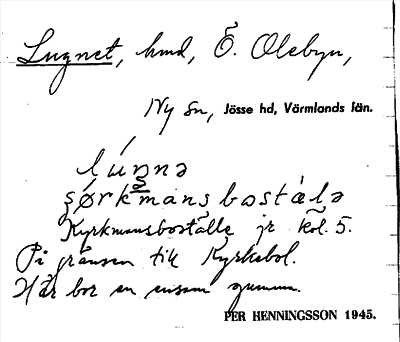 Lugnet, hmd, Ö. Olebyn,
Ny sn, Jösse hd, Värmlands län.
lúŋnə
şørkmansbostälə
Kyrkmansboställe jr kol. 5.
På gränsen till Kyrkebol.
Här bor en ensam gumma.
PER HENNINGSSON 1945.